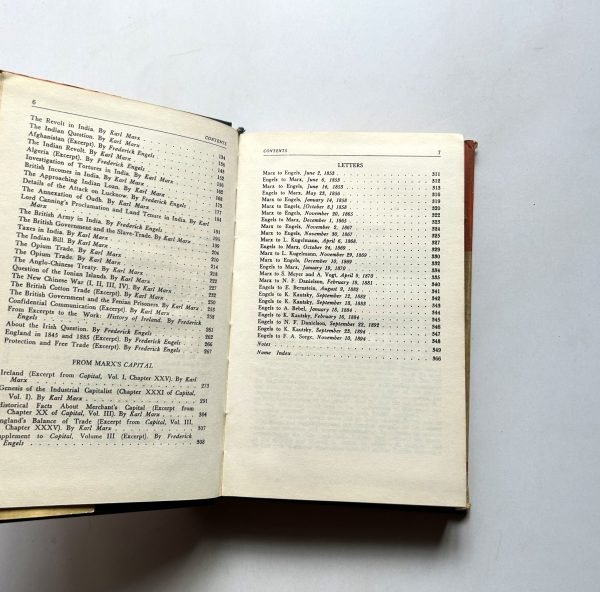 6
CONTENTS
The Revolt in India. By Karl Marx . . . 134
The Indian Question. By Karl Marx
Afghanistan (Excerpt). By Frederick Engels
The Indian Revolt. By Karl Marx
Algeria (Excerpt). By Frederick Engels
Investigation of Tortures in India. By Karl Marx
British Incomes in India. By Karl Marx
The Approaching Indian Loan. By Karl Marx
Details of the Attack on Lucknow. By Frederick Engels
The Annexation of Oudh. By Karl Marx
Lord Canning's Proclamation and Land Tenure in India. By Karl
Marx
The British Army in India. By Frederick Engels
The British Government and the Slave-Trade. By Karl Marx
Taxes in India. By Karl Marx
The Indian Bill. By Karl Marx
The Opium Trade. By Karl Marx
The Opium Trade. By Karl Marx
The Anglo-Chinese Treaty. By Karl Marx
Question of the Ionian Islands. By Karl Marx
The New Chinese War (I, II, III, IV). By Karl Marx
The British Cotton Trade (Excerpt). By Karl Marx
The British Government and the Fenian Prisoners. By Karl Marx
Confidential Communication (Excerpt). By Karl Marx
From Excerpts to the Work: History of Ireland. By Frederick
Engels
About the Irish Question. By Frederick Engels
England in 1845 and 1885. By Frederick Engels
Protection and Free Trade (Excerpt). By Frederick Engels . . . 267
FROM MARX'S CAPITAL
Ireland (Excerpt from Capital, Vol. I, Chapter XXV). By Karl
Marx . . . 273
Genesis of the Industrial Capitalist (Chapter XXXI of Capital,
Vol. I). By Karl Marx . . . 291
Historical Facts About Merchant's Capital (Excerpt from
Chapter XX of Capital, Vol. III). By Karl Marx . . . 304
England's Balance of Trade (Excerpt from Capital, Vol. III,
Chapter XXXV). By Karl Marx . . . 307
Supplement to Capital, Volume III (Excerpt). By Frederick
Engels . . . 308
CONTENTS 7
LETTERS
Marx to Engels, June 2, 1853 . . . 311
Engels to Marx, June 6, 1853 . . . 312
Marx to Engels, June 14, 1853 . . . 313
Engels to Marx, May 23, 1856 . . . 316
Marx to Engels, January 14, 1858
Marx to Engels, [October 8,] 1858
Marx to Engels, November 20, 1865
Marx to Engels, December 1, 1865
Marx to Engels, November 2, 1867
Marx to Engels, November 30, 1867
Marx to L. Kugelmann, April 6, 1868
Engels to Marx, October 24, 1869
Marx to L. Kugelmann, November 29, 1869
Marx to Engels, December 10, 1869
Engels to Marx, January 19, 1870
Marx to S. Meyer and A. Vogt, April 9, 1870
Marx to N. F. Danielson, February 19, 1881
Engels to E. Bernstein, August 9, 1882
Engels to K. Kautsky, September 12, 1882
Engels to K. Kautsky, September 18, 1883
Engels to A. Bebel, January 18, 1884
Engels to K. Kautsky, February 16, 1884
Engels to N. F. Danielson, September 22, 1892
Engels to K. Kautsky, September 23, 1894
Engels to F. A. Sorge, November 10, 1894
Notes . . . 349
Name Index . . . 366